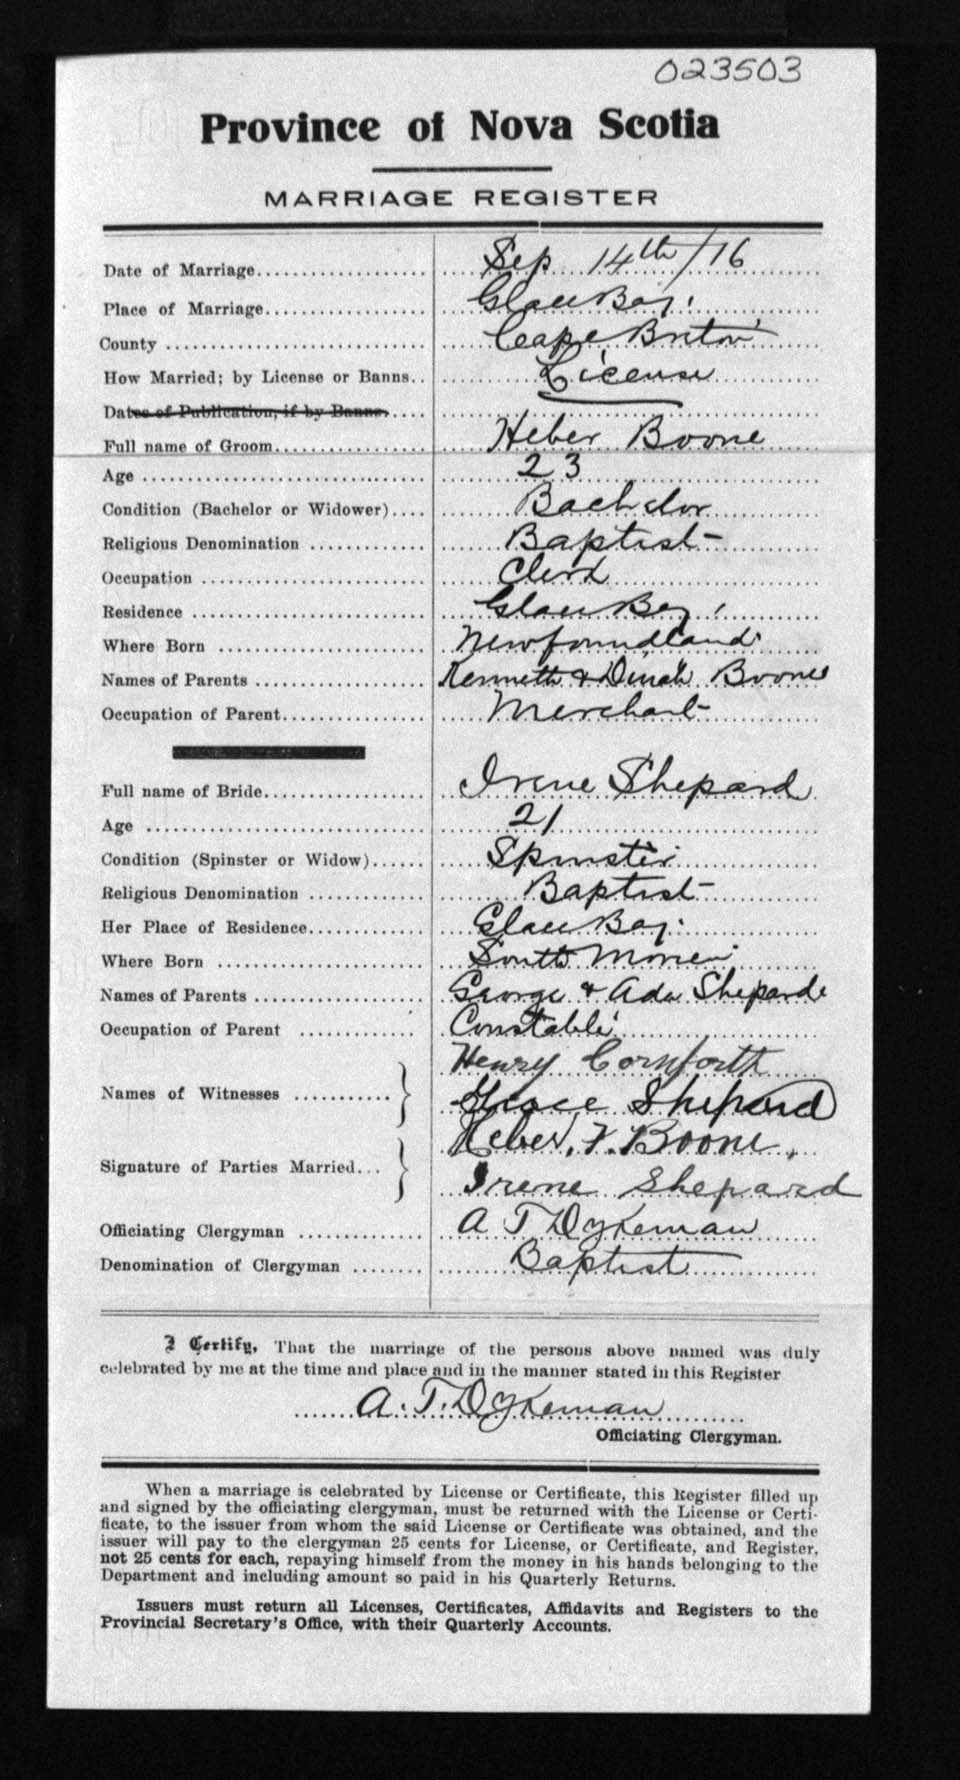 023503
Province of Nova Scotia
MARRIAGE REGISTER
Date of Marriage Sep 14th/16
Place of Marriage Glace Bay.
County Cape Breton
How Married; by License or Banns License
Dates of Publication, if by Banns
Full name of Groom Heber Boone
Age 23
Condition (Bachelor or Widower) Bachelor
Religious Denomination Baptist
Occupation Clerk
Residence Glace Bay
Where Born Newfoundland
Names of Parents Kenneth & Dinah Boone
Occupation of Parent Merchant
Full name of Bride Irene Shepard
Age 21
Condition (Spinster or Widow) Spinster
Religious Denomination Baptist
Her Place of Residence Glace Bay.
Where Born South Morien
Names of Parents George & Ada Shepard
Occupation of Parent Constable
Names of Witnesses Henry Cornforth
Grace Shepard
Signature of Parties Married Heber. F. Boone.
Irene Shepard
Officiating Clergyman A T Dykeman
Denomination of Clergyman Baptist
I Certify, That the marriage of the persons above named was duly
celebrated by me at the time and place and in the manner stated in this Register
A. T. Dykeman
Officiating Clergyman.
When a marriage is celebrated by License or Certificate, this Register filled up
and signed by the officiating clergyman, must be returned with the License or Certi-
ficate, to the issuer from whom the said License or Certificate was obtained, and the
issuer will pay to the clergyman 25 cents for License, or Certificate, and Register,
not 25 cents for each, repaying himself from the money in his hands belonging to the
Department and including amount so paid in his Quarterly Returns.
Issuers must return all Licenses, Certificates, Affidavits and Registers to the
Provincial Secretary's Office, with their Quarterly Accounts.